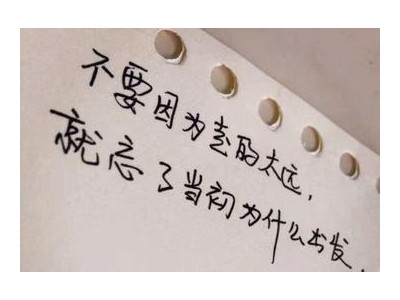 不要因为走的太远,
就忘了当初为什么出发.